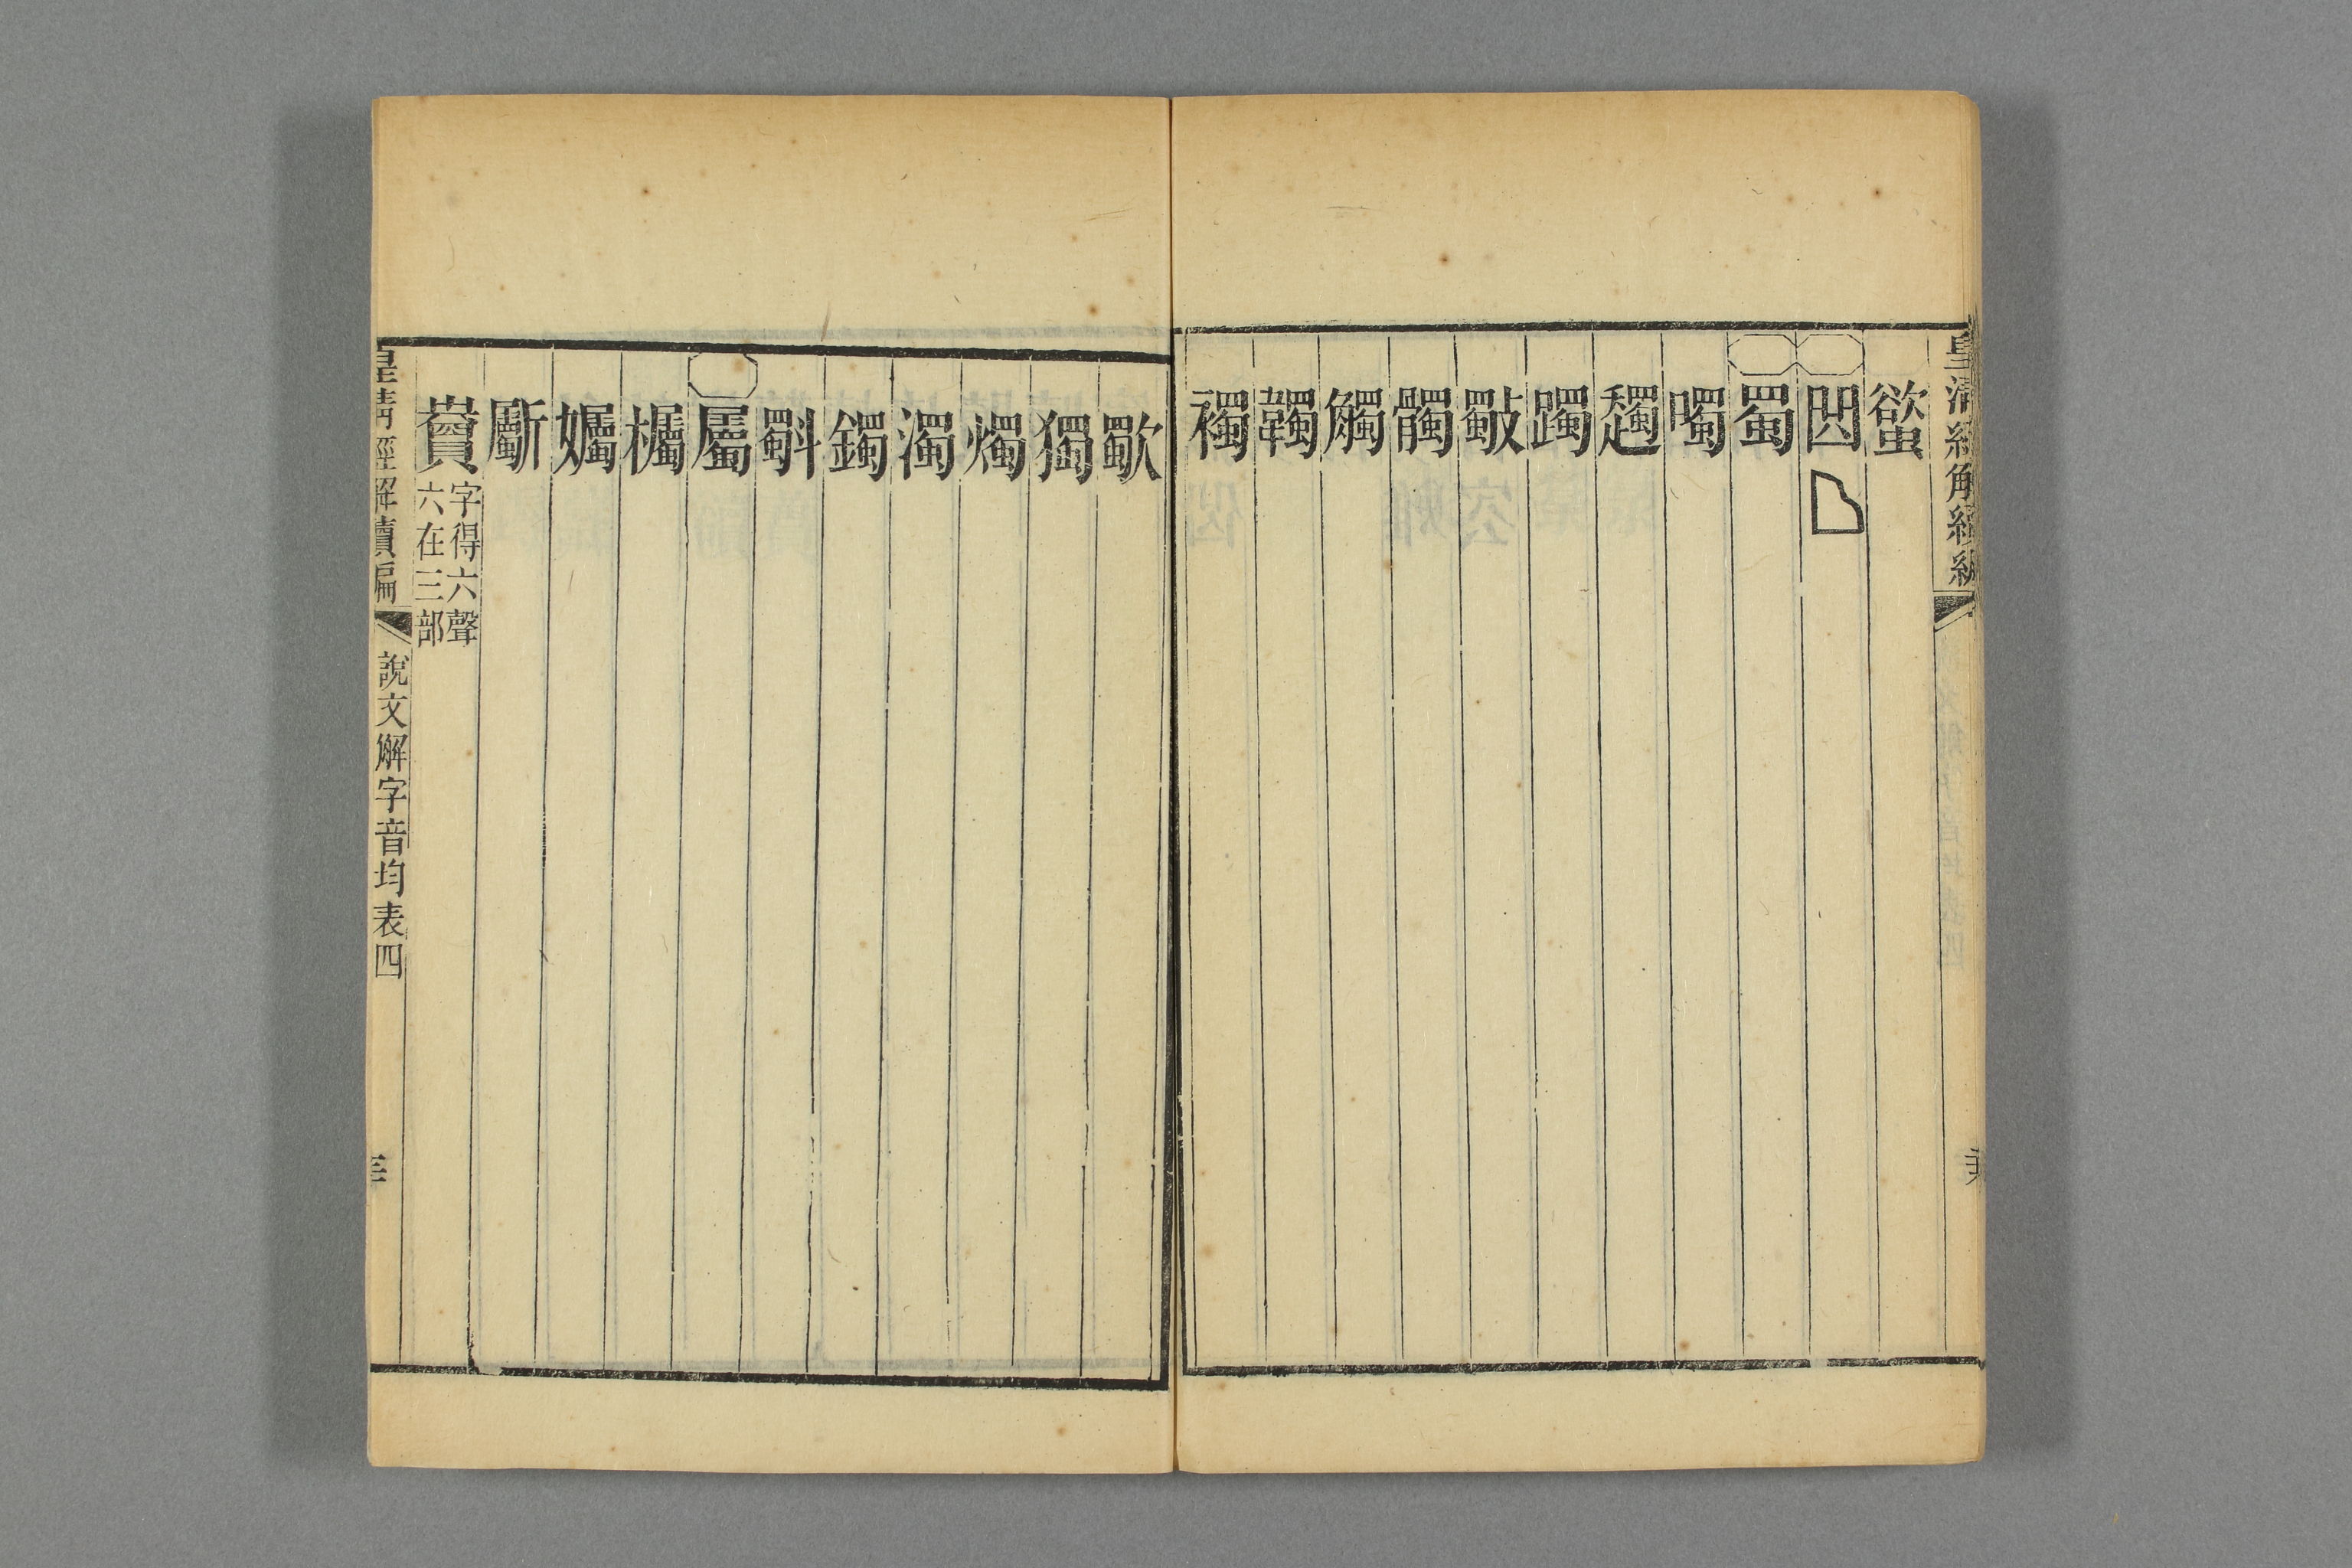 皇清經解續編
螸
蜀
噣
躅
斀
髑
觸
韣
襡
歜
獨
燭
濁
鐲
斣
屬
欘
孎
斸
𧷗
字得六聲
六在三部
皇清經解續編 說文解字音均表四